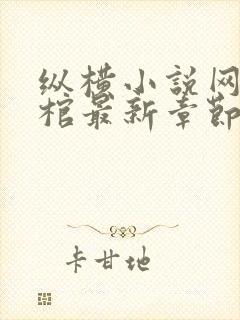 纵横小说网
棺最新章节
卡甘地